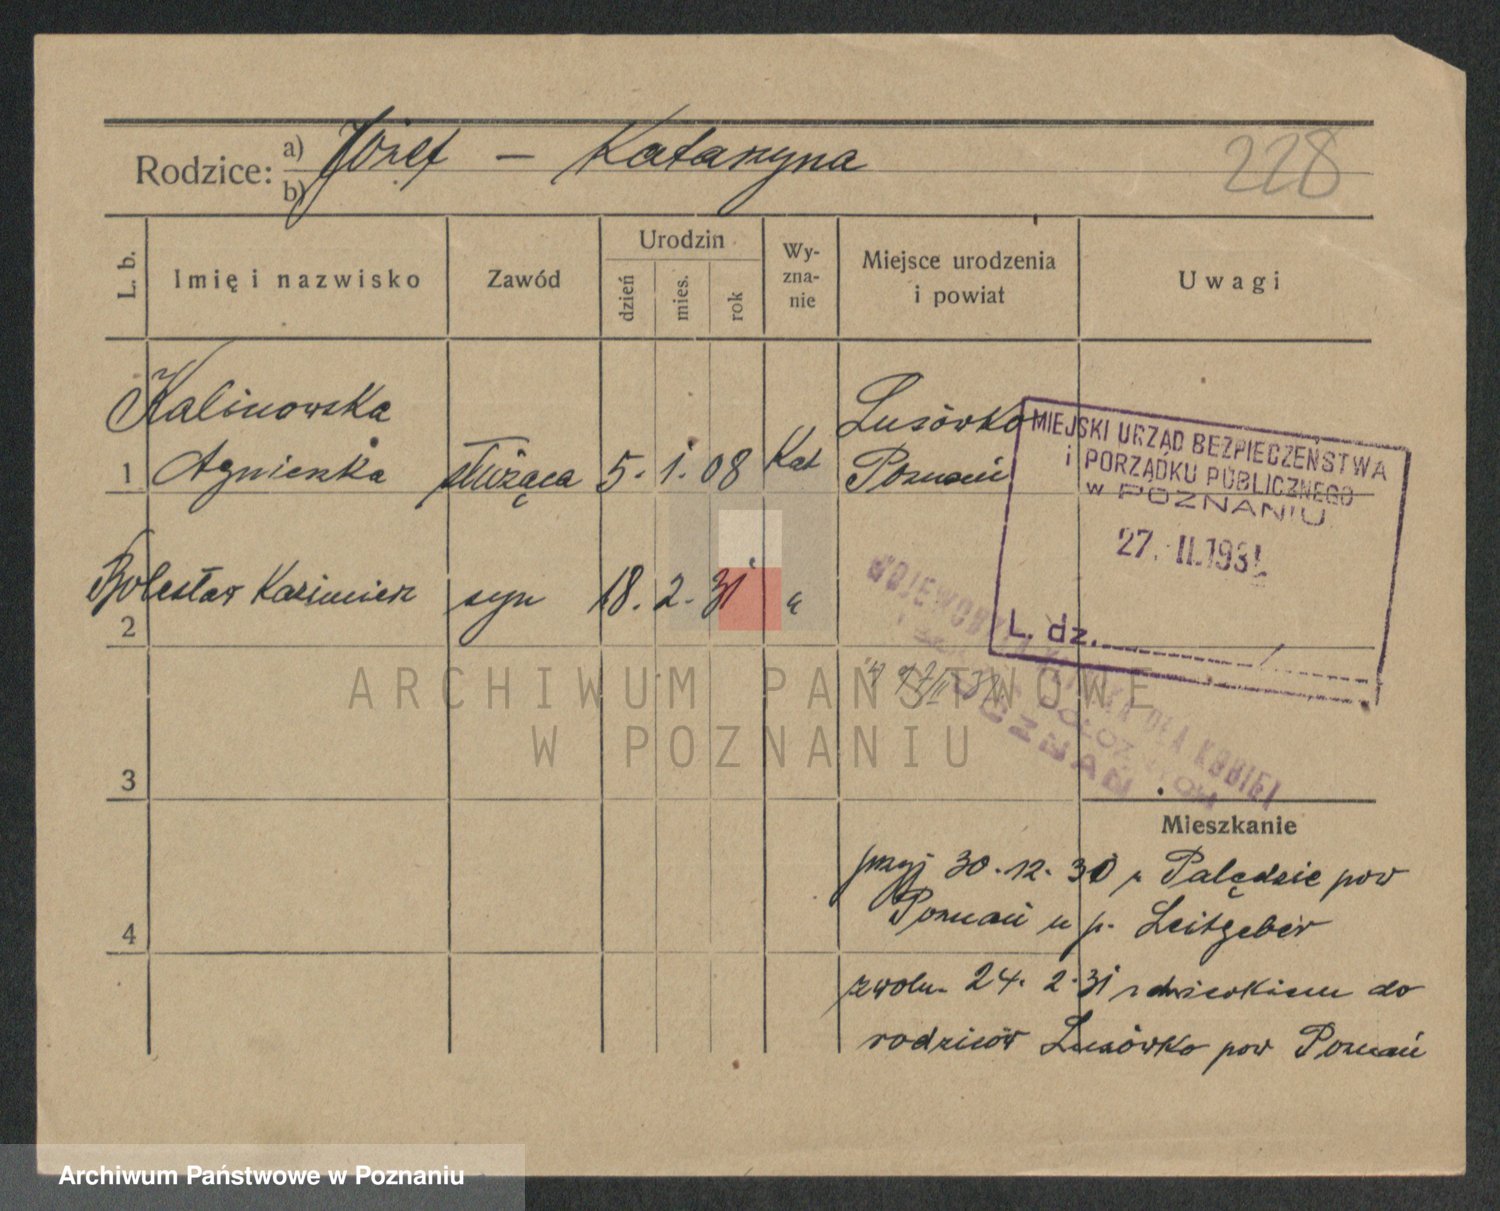 Rodzice: a) Józef – Katarzyna
b)
228
L. b.
Imię i nazwisko
Zawód
Urodzin
dzień
mies.
rok
Wy-
zna-
nie
Miejsce urodzenia
i powiat
Uwagi
Kalinowska
1 Agnieszka służąca 5. 1. 08 Kat
Lusówko
Poznań
MIEJSKI URZĄD BEZPIECZEŃSTWA
i PORZĄDKU PUBLICZNEGO
w POZNANIU
27. II. 1931
L. dz.
Bolesław Kazimierz syn 18. 2. 31 "
2
WOJEWÓDZKA KLINIKA DLA KOBIET
POZNAŃ
3
4
Mieszkanie
przyj 30.12.30 z Palędzie pow
Poznań u p. Leitgeber
zwoln. 24. 2. 31 z dzieckiem do
rodziców Lusówko pow Poznań
ARCHIWUM PAŃSTWOWE
W POZNANIU
Archiwum Państwowe w Poznaniu